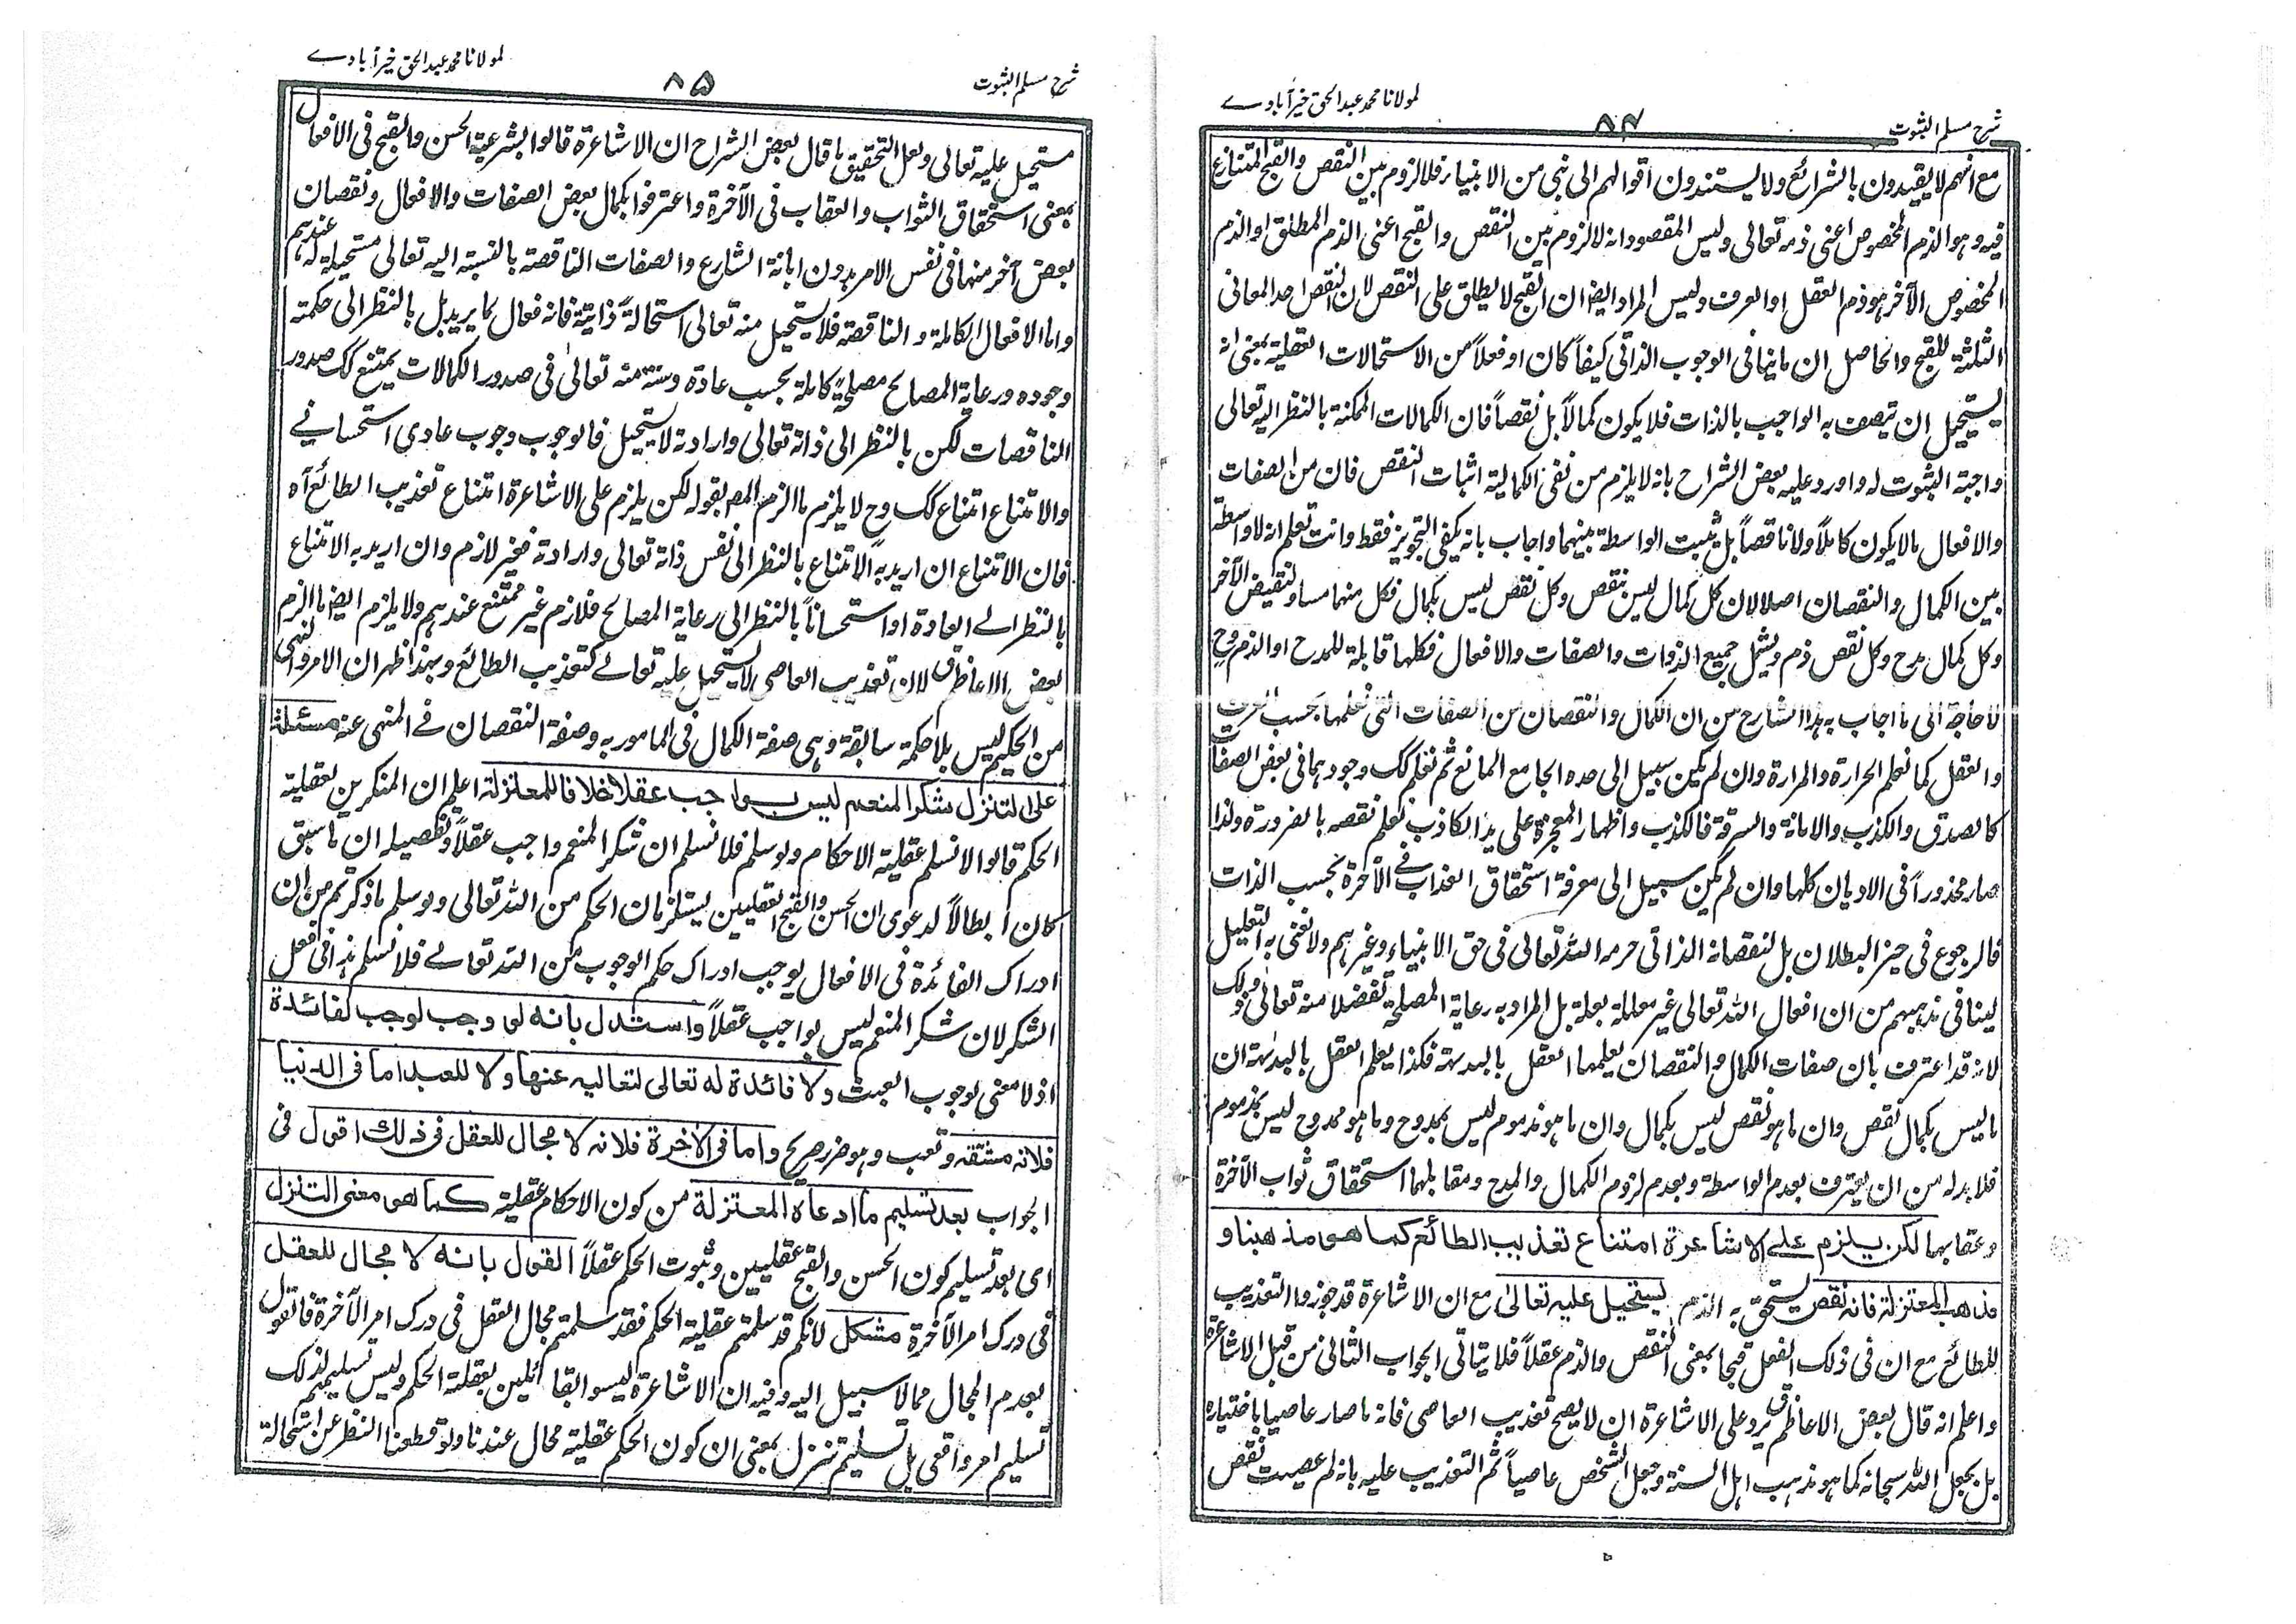 شرح مسلم الثبوت
۸۴
لمولانا محمد عبد الحق خیرآبادے
مع انہم لا یقیدون بالشرائع ولا یستندون اقوالہم الی نبی من الانبیاء فلا لزوم بین النقص والقبح المتنازع
فیہ وہو الذم المخصوص اعنی ذمہ تعالی ولیس المقصود انہ لا لزوم بین النقص والقبح اعنی الذم المطلق او الذم
المخصوص الآخر ہو ذم العقل او العرف ولیس المراد ایضا ان القبح لا یطلق علی النقص لان النقص احد المعانی
الثلثۃ للقبح والحاصل ان ما ینافی الوجوب الذاتی کیفاً کان او فعلاً من الاستحالات العقلیۃ بمعنی انہ
یستحیل ان یتصف بہ الواجب بالذات فلا یکون کمالاً بل نقصاً فان الکمالات الممکنۃ بالنظر الیہ تعالی
واجبۃ الثبوت لہ واورد علیہ بعض الشراح بانہ لا یلزم من نفی الکمالیۃ اثبات النقص فان من الصفات
والافعال ما لا یکون کاملاً ولا ناقصاً بل یثبت الواسطۃ بینہما واجاب بانہ یکفی التجویز فقط وانت تعلم انہ لا واسطۃ
بین الکمال والنقصان اصلا لان کل کمال لیس بنقص وکل نقص لیس بکمال فکل منہما مساو لنقیض الآخر
وکل کمال مدح وکل نقص ذم ویشمل جمیع الذوات والصفات والافعال فکلہا قابلۃ للمدح او الذم وح
لا حاجۃ الی ما اجاب بہ ہذا الشارح من ان الکمال والنقصان من الصفات التی نعلمہا بحسب العرف
والعقل کما نعلم الحرارۃ والمرارۃ وان لم یکن سبیل الی حدہ الجامع المانع ثم نعلم کک وجودہما فی بعض الصفا
کالصدق والکذب والامانۃ والسرقۃ فالکذب واظہار المعجزۃ علی ید الکاذب نعلم نقصہ بالضرورۃ ولذا
صار محذوراً فی الادیان کلہا وان لم یکن سبیل الی معرفۃ استحقاق العذاب فی الآخرۃ بحسب الذات
فالرجوع فی حیز البطلان بل لنقصانہ الذاتی حرمہ اللہ تعالی فی حق الانبیاء وغیرہم ولا نعنی بہ التعلیل
لینافی مذہبہم من ان افعال اللہ تعالی غیر معللۃ بعلۃ بل المراد بہ رعایۃ المصلحۃ تفضلا منہ تعالی وذلک
لانہ قد اعترف بان صفات الکمال والنقصان یعلمہا العقل بالبدیہۃ فکذا یعلم العقل بالبداہۃ ان
ما لیس بکمال نقص وان ما ہو نقص لیس بکمال وان ما ہو مذموم لیس بممدوح وما ہو ممدوح لیس بمذموم
فلا بد لہ من ان یعترف بعدم الواسطۃ وبعدم لزوم الکمال والمدح ومقابلہما استحقاق ثواب الآخرۃ
وعقابہا لکن یلزم علی الاشاعرۃ امتناع تعذیب الطائع کما ہو مذہبنا و
مذہب المعتزلۃ فانہ نقص یستحق بہ الذم یستحیل علیہ تعالی مع ان الاشاعرۃ قد جوزوا التعذیب
للطائع مع ان فی ذلک الفعل قبحا بمعنی النقص والذم عقلاً فلا یتاتی الجواب الثانی من قبل الاشاعرۃ
واعلم انہ قال بعض الاعاظم ق یرد علی الاشاعرۃ ان لا یصح تعذیب العاصی فانہ ما صار عاصیا باختیارہ
بل بجعل اللہ سبحانہ کما ہو مذہب اہل السنۃ وجعل الشخص عاصیاً ثم التعذیب علیہ بانہ لم عصیت نقص
شرح مسلم الثبوت
۸۵
لمولانا محمد عبد الحق خیرآبادے
مستحیل علیہ تعالی ولعل التحقیق ما قال بعض الشراح ان الاشاعرۃ قالوا بشرعیۃ الحسن والقبح فی الافعال
بمعنی استحقاق الثواب والعقاب فی الآخرۃ واعترفوا بکمال بعض الصفات والافعال ونقصان
بعض آخر منہا فی نفس الامر بدون ابانۃ الشارع والصفات الناقصۃ بالنسبۃ الیہ تعالی مستحیلۃ لہ عندہم
واما الافعال الکاملۃ والناقصۃ فلا یستحیل منہ تعالی استحالۃً ذاتیۃ فانہ فعال لما یرید بل بالنظر الی حکمتہ
وجودہ ورعایۃ المصالح مصلحۃً کاملۃ بحسب عادۃ وسنۃ منہ تعالیٰ فی صدور الکمالات یمتنع کک صدور
الناقصات لکن بالنظر الی ذاتہ تعالی وارادتہ لا یستحیل فالوجوب وجوب عادی استحسانے
والامتناع امتناع کک وح لا یلزم ما الزم المص بقولہ لکن یلزم علی الاشاعرۃ امتناع تعذیب الطائع آہ
فان الامتناع ان ارید بہ الامتناع بالنظر الی نفس ذاتہ تعالی وارادتہ فغیر لازم وان ارید بہ الامتناع
بالنظر الے العادۃ او استحساناً بالنظر الی رعایۃ المصالح فلازم غیر ممتنع عندہم ولا یلزم ایضا ما الزم
بعض الاعاظم ق لان تعذیب العاصی لا یستحیل علیہ تعالے کتعذیب الطائع وبہذا ظہر ان الامر والنہی
من الحکیم لیس بلا حکمۃ سابقۃ وہی صفۃ الکمال فی المامور بہ وصفۃ النقصان فے المنہی عنہ مسئلۃ
علی التنزل شکر المنعم لیس بواجب عقلا خلافا للمعتزلۃ اعلم ان المنکرین لعقلیۃ
الحکم قالوا لا نسلم عقلیۃ الاحکام ولو سلم فلا نسلم ان شکر المنعم واجب عقلاً وتفصیلہ ان ما سبق
کان ابطالاً لدعوی ان الحسن والقبح العقلیین یستلزمان الحکم من اللہ تعالی ولو سلم ما ذکرتم من ان
ادراک الفائدۃ فی الافعال یوجب ادراک حکم الوجوب من اللہ تعالے فلا نسلم ہذا فی فعل
الشکر لان شکر المنعم لیس بواجب عقلاً واستدل بانہ لو وجب لوجب لفائدۃ
اذ لا معنی لوجوب العبث ولا فائدۃ لہ تعالی لتعالیہ عنہا ولا للعبد اما فی الدنیا
فلانہ مشقۃ وتعب وہو ضرر صریح واما فی الآخرۃ فلانہ لا مجال للعقل فی ذلک اقول فی
الجواب بعد تسلیم ما ادعاہ المعتزلۃ من کون الاحکام عقلیۃ کما ہو معنی التنزل
ای بعد تسلیم کون الحسن والقبح عقلیین وثبوت الحکم عقلاً القول بانہ لا مجال للعقل
فی درک امر الآخرۃ مشکل لانکم قد سلمتم عقلیۃ الحکم فقد سلمتم مجال العقل فی درک امر الآخرۃ فالقول
بعدم المجال مما لا سبیل الیہ وفیہ ان الاشاعرۃ لیسوا القائلین بعقلیۃ الحکم ولیس تسلیمہم لذلک
تسلیم امر واقعی بل تسلیم تنزل بمعنی ان کون الحکم عقلیۃ محال عندنا ولو قطعنا النظر عن استحالۃ